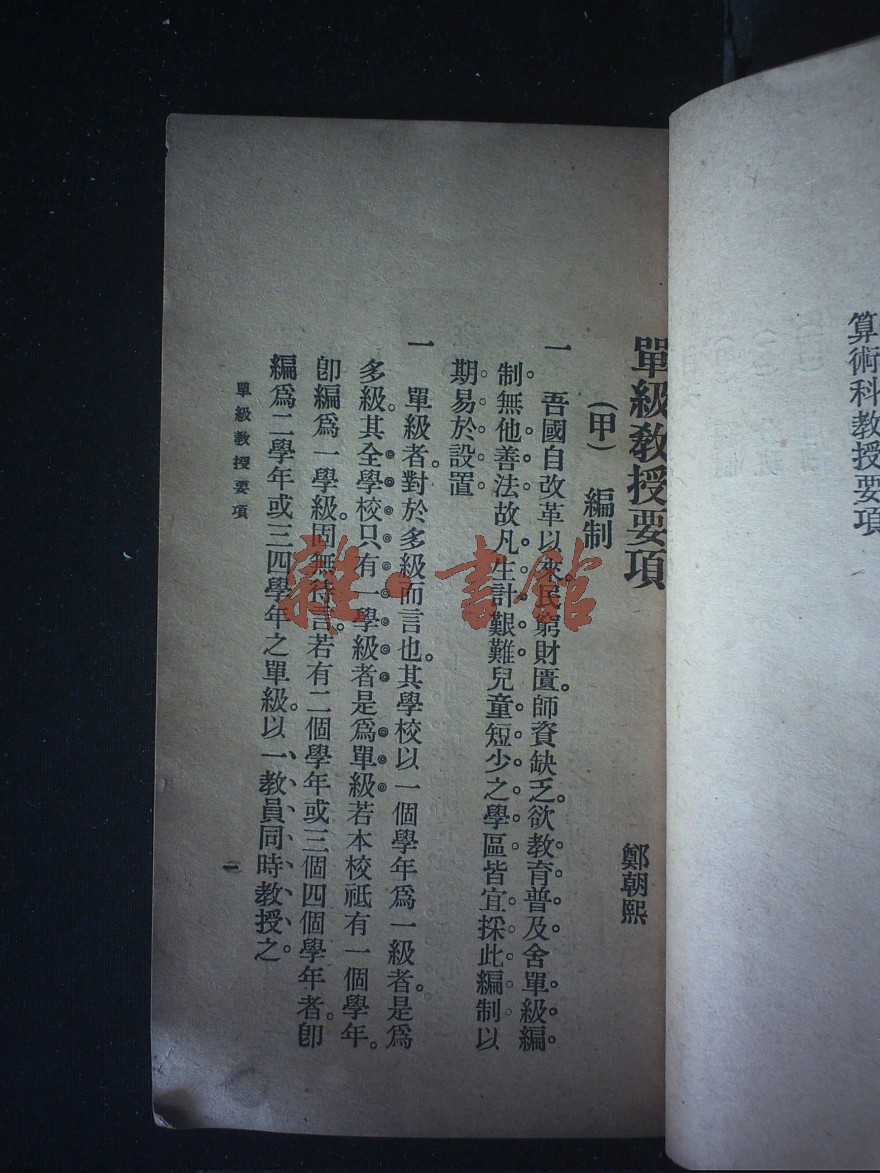 算術科教授要項
單級教授要項
鄭朝熙
（甲）　編制
一　吾國自改革以來民窮財匱。師資缺乏。欲教育普及舍單級編
制無他善法故凡生計艱難兒童短少之學區皆宜採此編制以
期易於設置
一　單級者。對於多級而言也。其學校以一個學年爲一級者。是爲
多級。其全學校只有一學級者是爲單級若本校祗有一個學年。
卽編爲一學級。固無待言。若有二個學年或三個四個學年者。卽
編爲二學年或三四學年之單級。以一教員同時教授之。
單級教授要項
一
雜·書館